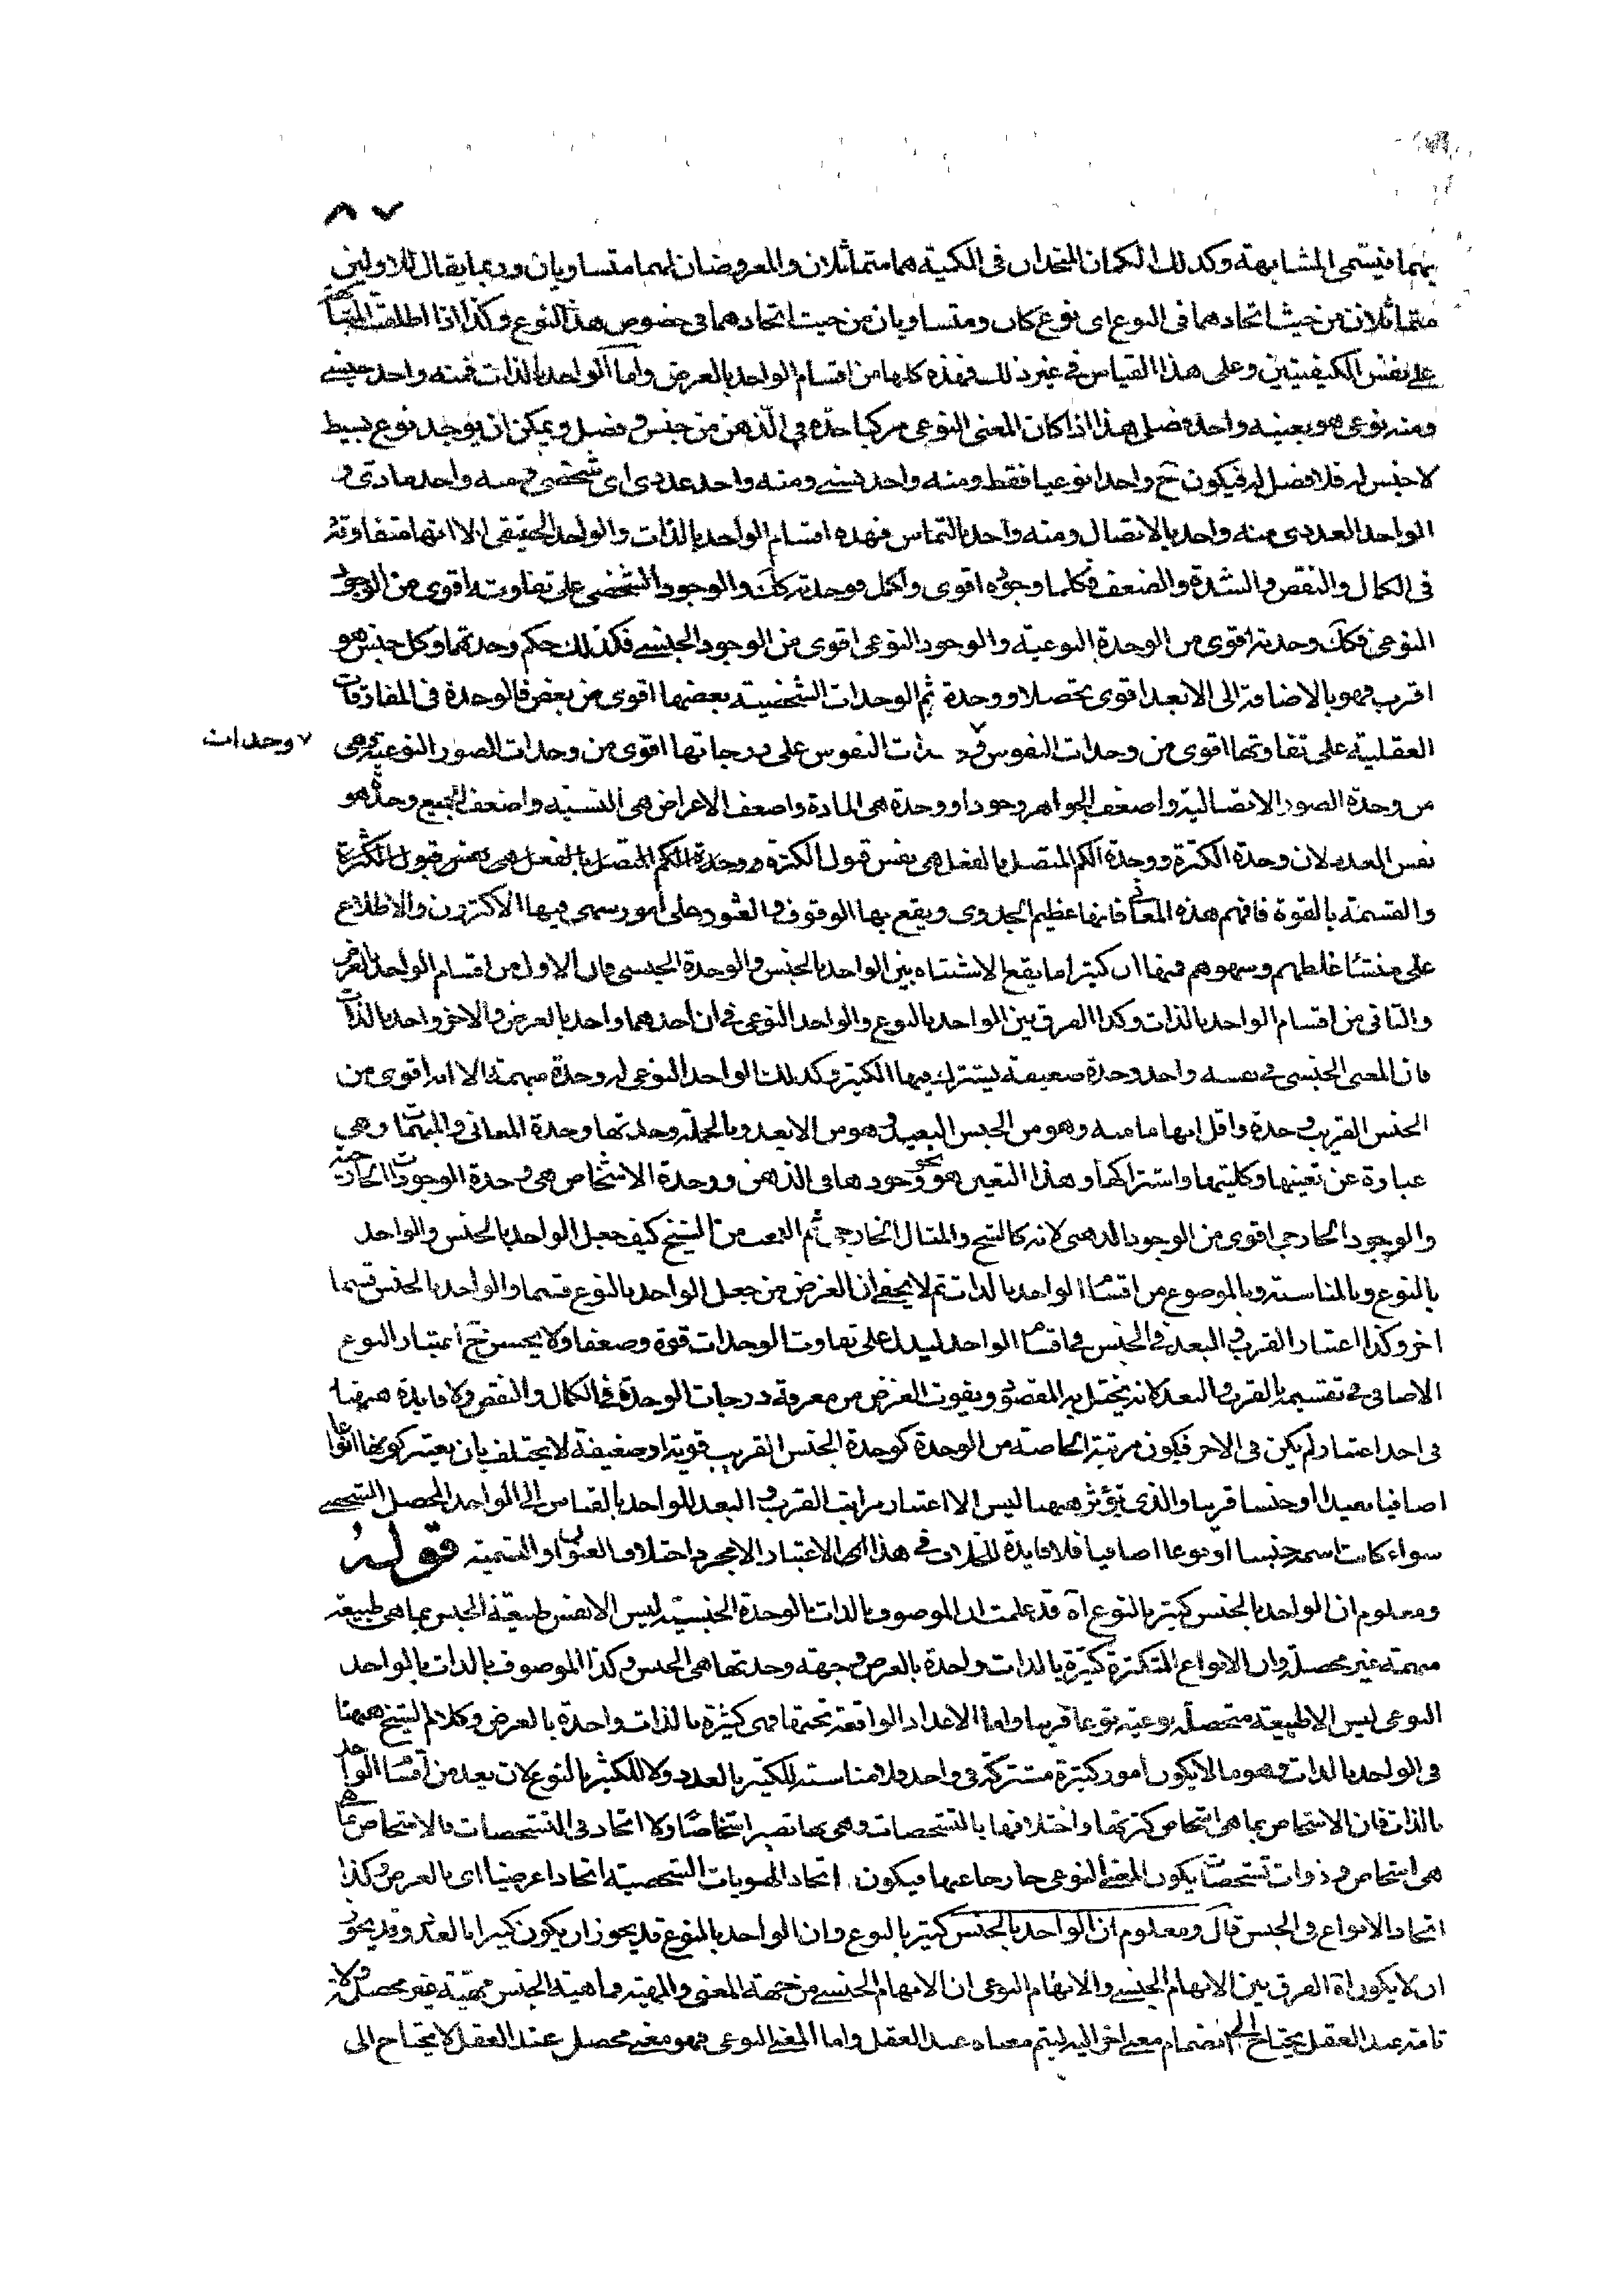 ٨٧
بينهما فيسمى المشابهة وكذلك الكمان المتحدان فى الكمية هما متماثلان والمعروضان لهما متساويان وربما يقال للاولين
متماثلان من حيث اتحادهما فى النوع اى نوع كان ومتساويان من حيث اتحادهما فى خصوص هذا النوع وكذا اذا اطلقت
على نفس الكيفيتين وعلى هذا القياس فى غير ذلك فهذه كلها من اقسام الواحد بالعرض واما الواحد بالذات فمنه واحد جنسى
ومنه نوعى هو بعينه واحد فصلى هذا اذا كان المعنى النوعى مركبا حده فى الذهن من جنس وفصل ويمكن ان يوجد نوع بسيط
لا جنس له فلا فصل له فيكون ح واحدا نوعيا فقط ومنه واحد نسبى ومنه واحد عددى اى شخصى ومنه واحد مادى و
الواحد العددى منه واحد بالاتصال ومنه واحد بالتماس فهذه اقسام الواحد بالذات والواحد الحقيقى الا انها متفاوتة
فى الكمال والنقص والشدة والضعف فكلما وجوده اقوى واكمل فوحدته كك والوجود الشخصى على تفاوته اقوى من الوجود
النوعى فكك وحدته اقوى من الوحدة النوعية والوجود النوعى اقوى من الوجود الجنسى فكذلك حكم وحدتهما وكل جنس هو
اقرب فهو بالاضافة الى الابعد اقوى تحصلا ووحدة ثم الوحدات الشخصية بعضها اقوى من بعض فالوحدة فى المفارقات
العقلية على تفاوتها اقوى من وحدات النفوس و النفوس على درجاتها اقوى من وحدات الصور النوعية وهى
وحدات
من وحدة الصور الاتصالية واضعف الجواهر وجودا ووحدة هى المادة واضعف الاعراض هى النسبة واضعف الجميع وحدة هو
نفس العدد لان وحدة الكثرة ووحدة الكم المتصل بالفعل هى نفس قبول الكثرة ووحدة الكم المتصل بالفعل هى نفس قبول الكثرة
والقسمة بالقوة فافهم هذه المعانى فانها عظيم الجدوى ويقع بها الوقوف والعثور على امور سهى فيها الاكثرون والاطلاع
على منشأ غلطهم وسهوهم فمنها ان كثيرا ما يقع الاشتباه بين الواحد بالجنس والوحدة الجنسى فان الاول من اقسام الواحد بالعرض
والثانى من اقسام الواحد بالذات وكذا الفرق بين الواحد بالنوع والواحد النوعى فى ان احدهما واحد بالعرض والاخر واحد بالذات
فان المعنى الجنسى فى نفسه واحد وحدة ضعيفة يشترك فيها الكثير وكذلك الواحد النوعى له وحدة مبهمة الا انه اقوى من
الجنس القريب وحدة واقل ابهاما منه وهو من الجنس البعيد وهو من الابعد وبالجملة وحدتها وحدة المعانى والمهيات وهى
عبارة عن تعينها وكليتها واشتراكها وهذا التعين هو نحو وجودها فى الذهن ووحدة الاشخاص هى وحدة الوجودات الخارجية
والوجود الخارجى اقوى من الوجود الذهنى لانه كالشبح والمثال للخارجى ثم العجب من الشيخ كيف جعل الواحد بالجنس والواحد
بالنوع وبالمناسبة وبالموضوع من اقسام الواحد بالذات ثم لا يخفى ان الغرض من جعل الواحد بالنوع قسما والواحد بالجنس قسما
اخر وكذا اعتبار القرب والبعد فى الجنس فى اقسام الواحد ليدل على تفاوت الوحدات قوة وضعفا ولا يحسن ح اعتبار النوع
الاضافى فى تقسيمه بالقرب والبعد لانه يختل به المقصود ويفوت الغرض من معرفة درجات الوحدة فى الكمال والنقص ولا فايدة ههنا
فى احد اعتبار لم يكن فى الاخر فيكون مرتبة الخاصة من الوحدة كوحدة الجنس القريب قوية او ضعيفة لا يختلف بان يعتبر كونها انواعا
اضافيا بعيدا او جنسا قريبا والذى يؤثر ههنا ليس الا اعتبار مراتب القرب والبعد للواحد بالقياس الى الواحد المحصل الشخصى
سواء كانت اسمه جنسا او نوعا اضافيا فلا فايدة فى هذا الاعتبار الا مجرد اختلاف العنوان والتسمية قوله
ومعلوم ان الواحد بالجنس كثير بالنوع اه قد علمت ان الموصوف بالذات بالوحدة الجنسية ليس الا نفس طبيعة الجنس بما هى طبيعة
مبهمة غير محصلة وان الانواع المتكثرة كثيرة بالذات واحدة بالعرض وجهة وحدتها هى الجنس وكذا الموصوف بالذات بالواحد
النوعى ليس الا طبيعة متحصلة نوعية نوعا قريبا واما الاعداد الواقعة تحتها فهى كثيرة بالذات واحدة بالعرض وكلام الشيخ ههنا
فى الواحد بالذات وهو ما لا يكون امور كثيرة مشتركة فى واحد فلا مناسبة للكثير بالعدد ولا للكثير بالنوع لان يعد من اقسام الواحد
بالذات فان الاشخاص بما هى اشخاص كثرتها واختلافها بالتشخصات وهى بها تصير اشخاصا ولا اتحاد فى التشخصات فالاشخاص بما
هى اشخاص وذوات تشخصات يكون المعنى النوعى خارجا عنها فيكون اتحاد الهويات الشخصية اتحادا عرضيا اى بالعرض وكذا
اتحاد الانواع فى الجنس قال ومعلوم ان الواحد بالجنس كثير بالنوع وان الواحد بالنوع قد يجوز ان يكون كثيرا بالعدد وقد يجوز
ان لا يكون اه الفرق بين الابهام الجنسى والابهام النوعى ان الابهام الجنسى من جهة المعنى والمهية فماهية الجنس مهية غير محصلة لا
تامة عند العقل يحتاج الى انضمام معنى اخر اليه ليتم معناه عند العقل واما المعنى النوعى فهو معنى محصل عند العقل لا يحتاج الى